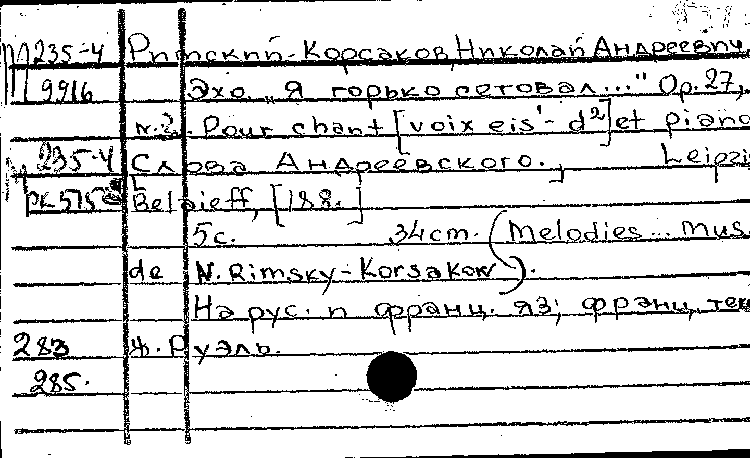 235-4 Римский-Корсаков, Николай Андреевич
9916 Эхо. „Я горько сетовал..." Op. 27,
N.2. Pour chant [voix eis'- d²] et piano
235-4 Слова Андреевского. Leipzi
РК 575 Belaieff, [188.]
5с. 34cm. (Melodies... mus.
de N. Rimsky-Korsakow).
На рус. и франц. яз; франц. тек
283 Ж. Руэль.
285.